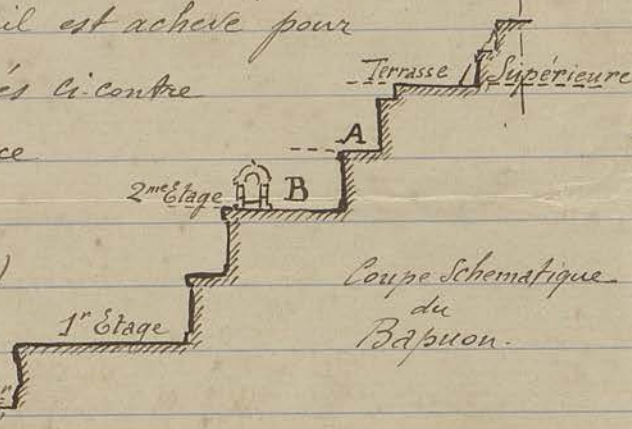 il est achevé pour
és ci-contre
ce
Terrasse Supérieure
A
2me Etage B
1r Etage
Coupe Schematique
du
Bapuon.